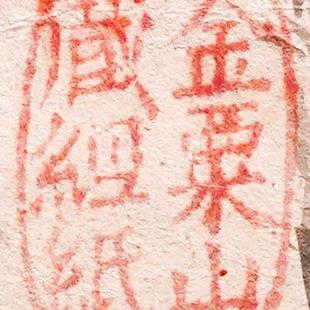 金粟山
藏經紙